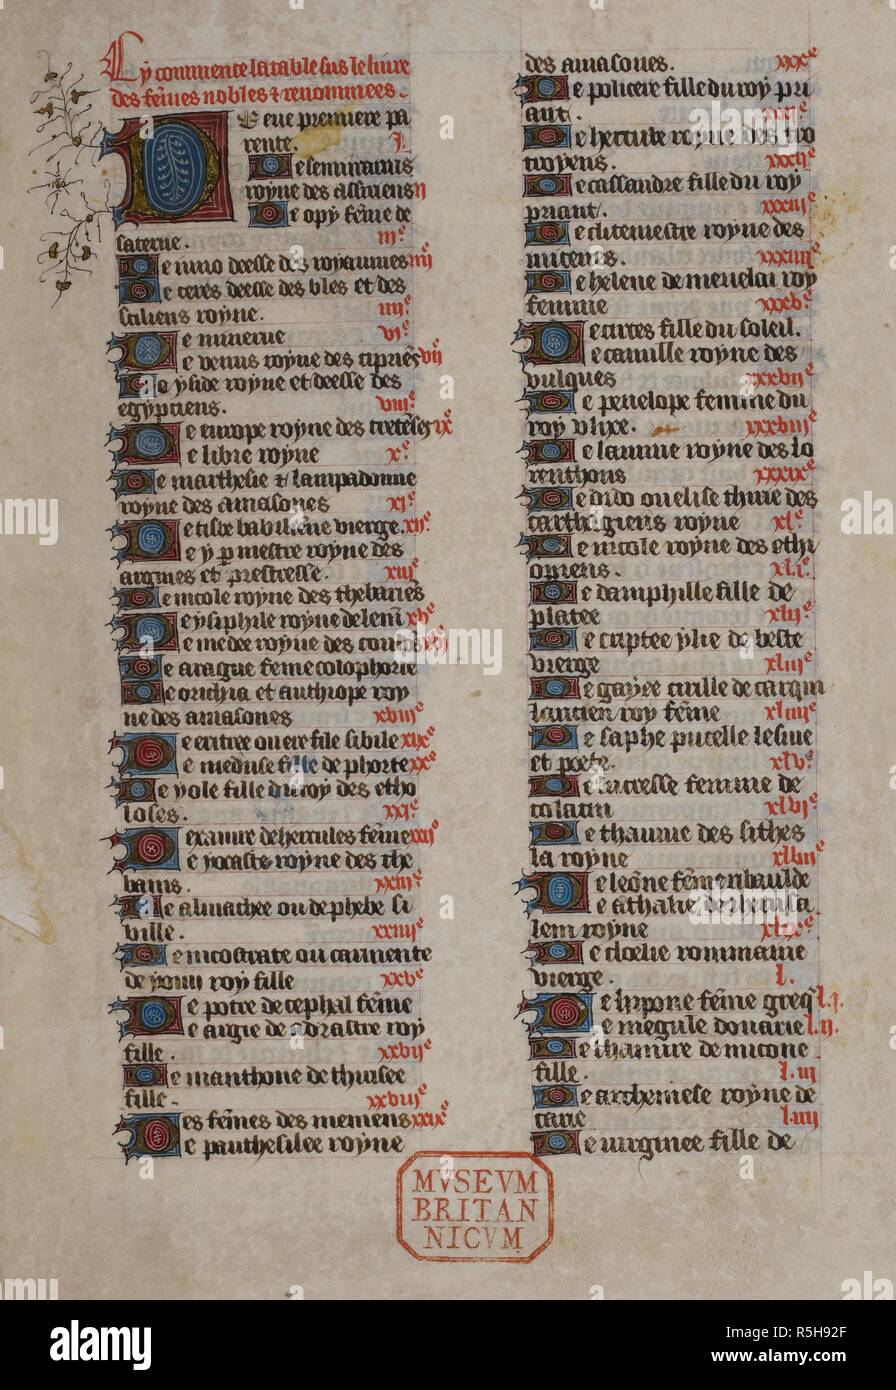 Cy commence la table sus le livre
des fẽmes nobles & renommees.
De eue premiere pa
rente. i.
De semiramis
royne des assiriens ii
De opy fẽme de
saterne. iiiᵉ
De iuno deesse des royaumes iiij
De ceres deesse des bles et des
siciliens royne.
De minerue viᵉ
De venus royne des cipriẽs vij
De yside royne et deesse des
egypciens. viijᵉ
De europe royne des cretẽses ixᵉ
De libie royne xᵉ
De marthesie & lampadonne
royne des amasones xiᵉ
De tisbe babiliene vierge. xijᵉ
De yꝑmestre royne des
argiues et prestresse. xiijᵉ
De nicole royne des thebaiẽs
De ysiphile royne de lẽni xvᵉ
De medee royne des
De aragne feme colophonie
De orichia et anthiope roy
ne des amasones xviijᵉ
De eritree ou erifile sibile xixᵉ
De meduse fille de phorte xxᵉ
De yole fille du roy des etho
loses. xxiᵉ
Dexanire de hercules fẽme xxij
De yocaste royne des the
bains. xxiijᵉ
De almathee ou dephebe si
bille. xxiiijᵉ
De nicostrate ou carmente
de roy fille xxvᵉ
De pocre de cephal fẽme
De argie de adrastre roy
fille. xxvijᵉ
De manthone de thiresee
fille. xxviijᵉ
Des fẽmes des memens xxixᵉ
De panthesilee royne
des amasones. xxxᵉ
De policene fille du roy pri
ant.
De hercube royne des tro
troyens. xxxijᵉ
De cassandre fille du roy
priant. xxxiijᵉ
De clitemestre royne des
xxxiiijᵉ
De helene de menelai roy
femme xxxvᵉ
De circes fille du soleil.
De camille royne des
vulques xxxvijᵉ
De penelope femme du
roy vlixe. xxxviijᵉ
De lauine royne des lo
renthons xxxixᵉ
De dido ou elise thirie des
carthagiens royne xlᵉ
De nicole royne des ethi
opiens. xliᵉ
De pamphille fille de
platee xlijᵉ
De vierge xliijᵉ
De gayee cirille de tarqui
lancien roy fẽme xliiijᵉ
De saphe pucelle lesine
et poete. xlvᵉ
De lucresse femme de
colatin xlviᵉ
De thamire des sithes
la royne xlvijᵉ
De leõne
De athalie de iherusa
lem royne xlixᵉ
De cloelie rommaine
vierge. l.
De hipone fẽme greq̃ l.j.
De megule douarie l.ij.
De thamire de nicone
fille. l.iij
De archemese royne de
carie l.iiij
De virginee fille de
MVSEVM
BRITAN
NICVM
alamy
Image ID: R5H92F
www.alamy.com